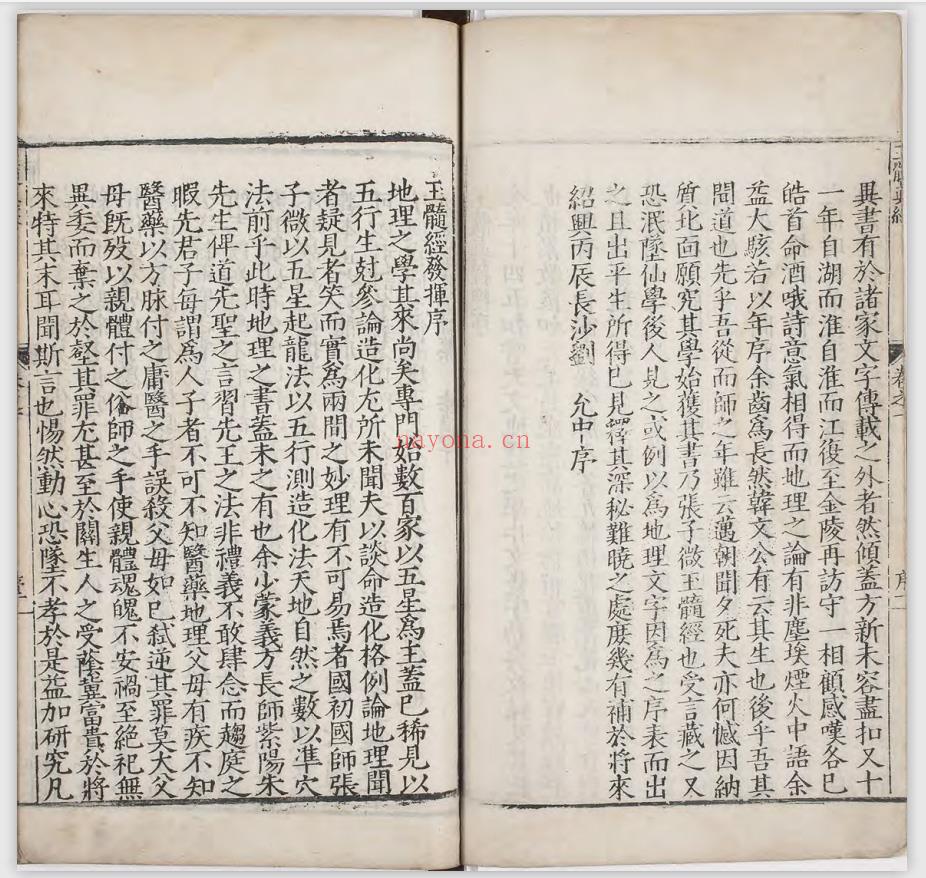 異書有於諸家文字傳載之外者然傾蓋方新未容盡扣又十
一年自湖而淮自淮而江復至金陵再訪守一相顧感嘆各已
皓首命酒哦詩意氣相得而地理之論有非塵埃煙火中語余
益大駭若以年序余齒爲長然韓文公有云其生也後乎吾其
聞道也先乎吾從而師之年雖云邁朝聞夕死夫亦何憾因納
質北面願究其學始獲其書乃張子微玉髓經也受言藏之又
恐泯墜仙學後人見之或例以爲地理文字因爲之序表而出
之且出平生所得已見釋其深秘難曉之處庶幾有補於將來
紹興丙辰長沙劉 允中序
玉髓經發揮序
地理之學其來尚矣專門始數百家以五星爲主蓋已稀見以
五行生尅參論造化尤所未聞夫以談命造化格例論地理聞
者疑見者笑而實爲兩間之妙理有不可易焉者國初國師張
子微以五星起龍法以五行測造化法天地自然之數以準穴
法前乎此時地理之書蓋未之有也余少蒙義方長師紫陽朱
先生俾道先聖之言習先王之法非禮義不敢肆念而趨庭之
暇先君子每謂爲人子者不可不知醫藥地理父母有疾不知
醫藥以方脉付之庸醫之手誤殺父母如已弒逆其罪莫大父
母旣歿以親體付之俗師之手使親體魂魄不安禍至絕祀無
異委而棄之於壑其罪尤甚至於關生人之受蔭冀富貴於將
來特其末耳聞斯言也惕然動心恐墜不孝於是益加研究凡
玉髓真經
卷之一
序二
序一
nayona.cn